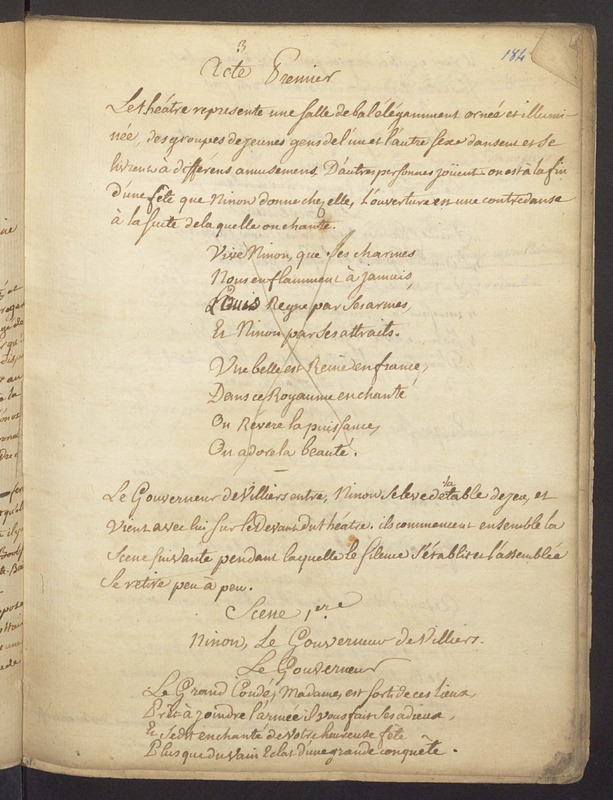 3
184
Acte Premier
Le théatre represente une salle de bal élégamment ornée et illumi-
née, des groupes de jeunes gens de l'un et l'autre sexe dansent et se
livrent à différens amusemens. D'autres personnes joüent. on est à la fin
d'une fête que Ninon donne chez elle, L'ouverture est une contredanse
à la suite de laquelle on chante.
Vive Ninon, que ses charmes
Nous enflamment à jamais,
Louis Regne par ses armes,
Et Ninon par ses attraits.
Une belle est Reine en france,
Dans ce Royaume enchanté
On Revere la puissance,
On adore la beauté.
Le Gouverneur de Villiers entre, Ninon se leve de la table de jeu, et
vient avec lui sur le Devant du théatre. ils commencent ensemble la
Scene suivante pendant laquelle le silence s'établit et l'assemblée
se retire peu à peu.
Scene 1.ere
Ninon, Le Gouverneur de Villiers.
Le Gouverneur
Le Grand Condé, Madame, est sorti de ces lieux,
Prêt à joindre l'armée il vous fait ses adieux,
Et se dit enchanté de votre heureuse fête
Plus que du vain Eclat d'une grande conquête.